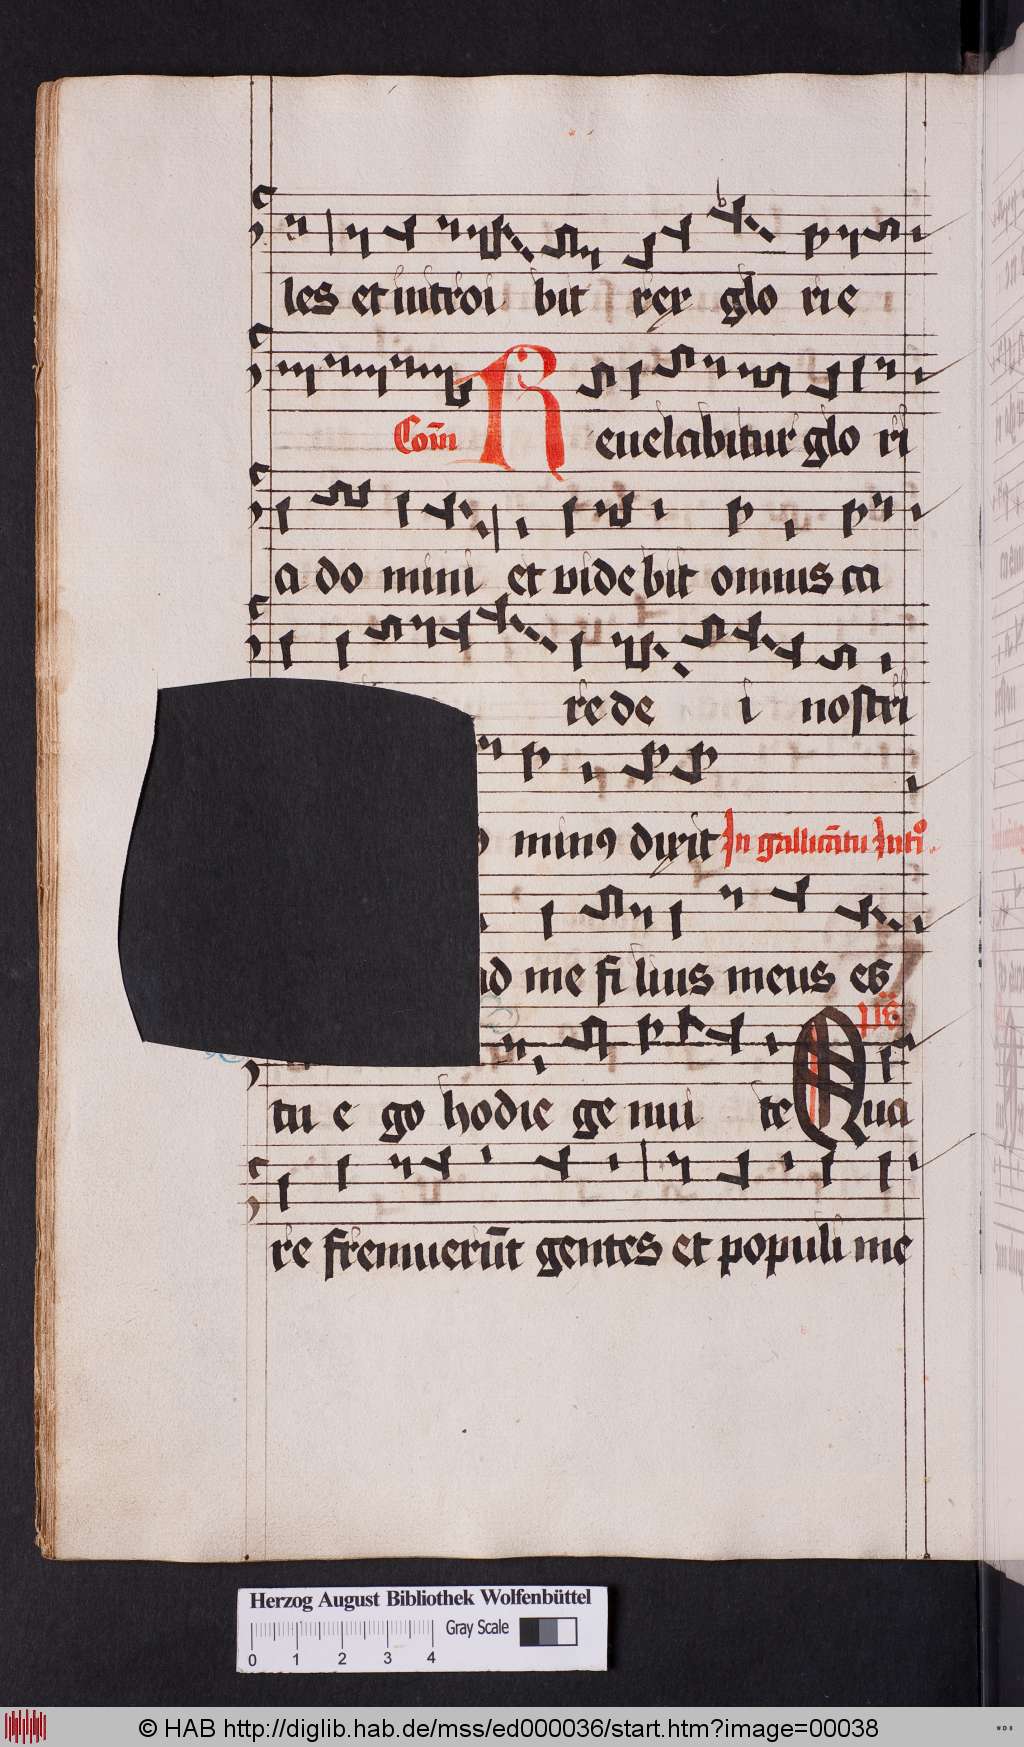 les et introi bit rex glo rie
Com̄ Reuelabitur glo ri
a do mini et videbit omnis ca
re de i nostri
minꝯ dixit In gallicātu Introͦ.
ad me fi lius meus es
p̄s
tu e go hodie ge nui te Qua
re fremuerūt gentes et populi me
Herzog August Bibliothek Wolfenbüttel
0 1 2 3 4 Gray Scale
© HAB http://diglib.hab.de/mss/ed000036/start.htm?image=00038